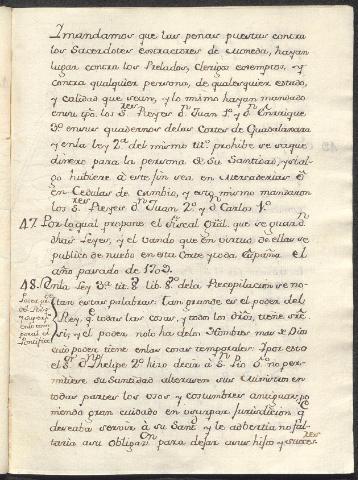 Y mandamos que las penas puestas contra
los Sacerdotes extractores de Moneda, hayan
lugar contra los Prelados, clerigos exemptos, y
contra qualquier persona, de qualesquier estado,
y calidad que sean, y lo mismo hayan mandado
los S.res Reyes D.n Juan 1.º y D.n Enrique
3.º en sus quadernos de las Cortes de Guadalaxara
y en la ley 2.ª del mismo tit.º prohibe se saque
dinero para la persona de Su Santidad, y si al-
go hubiere a este fin sea en Mercaderias ó
en Cedulas de Cambio, y esto mismo mandaron
los S.res Reyes D.n Juan 2.º y D.n Carlos 1.º
47. Por lo qual propone el Fiscal Gral. que se guarden
dhas Leyes, y el vando que en virtud de ellas se
publicó de nuevo en esta Corte y toda España el
año pasado de 1709.
48. En la Ley 3.ª tit. 8 lib. 8.º de la Recopilacion se no-
tan estas palabras: Tan grande es el poder del
Rey, q.e todas las cosas, y todos los dros, tiene so
si; y el poder no lo ha de los Hombres mas de Dios
cuio poder tiene en las cosas temporales: Por esto
el S.r D.n Phelipe 2.º hizo decir á S.n Pio 5.º no per-
mitiese su Santidad alterasen sus Ministros en
todas partes los usos y costumbres antiguas, po
niendo gran cuidado en usurpar jurisdiccion q.e
deseaba servir à su San.d y le advertia no fal-
taria a su obligac.on para dejar a sus hijos y suces.res